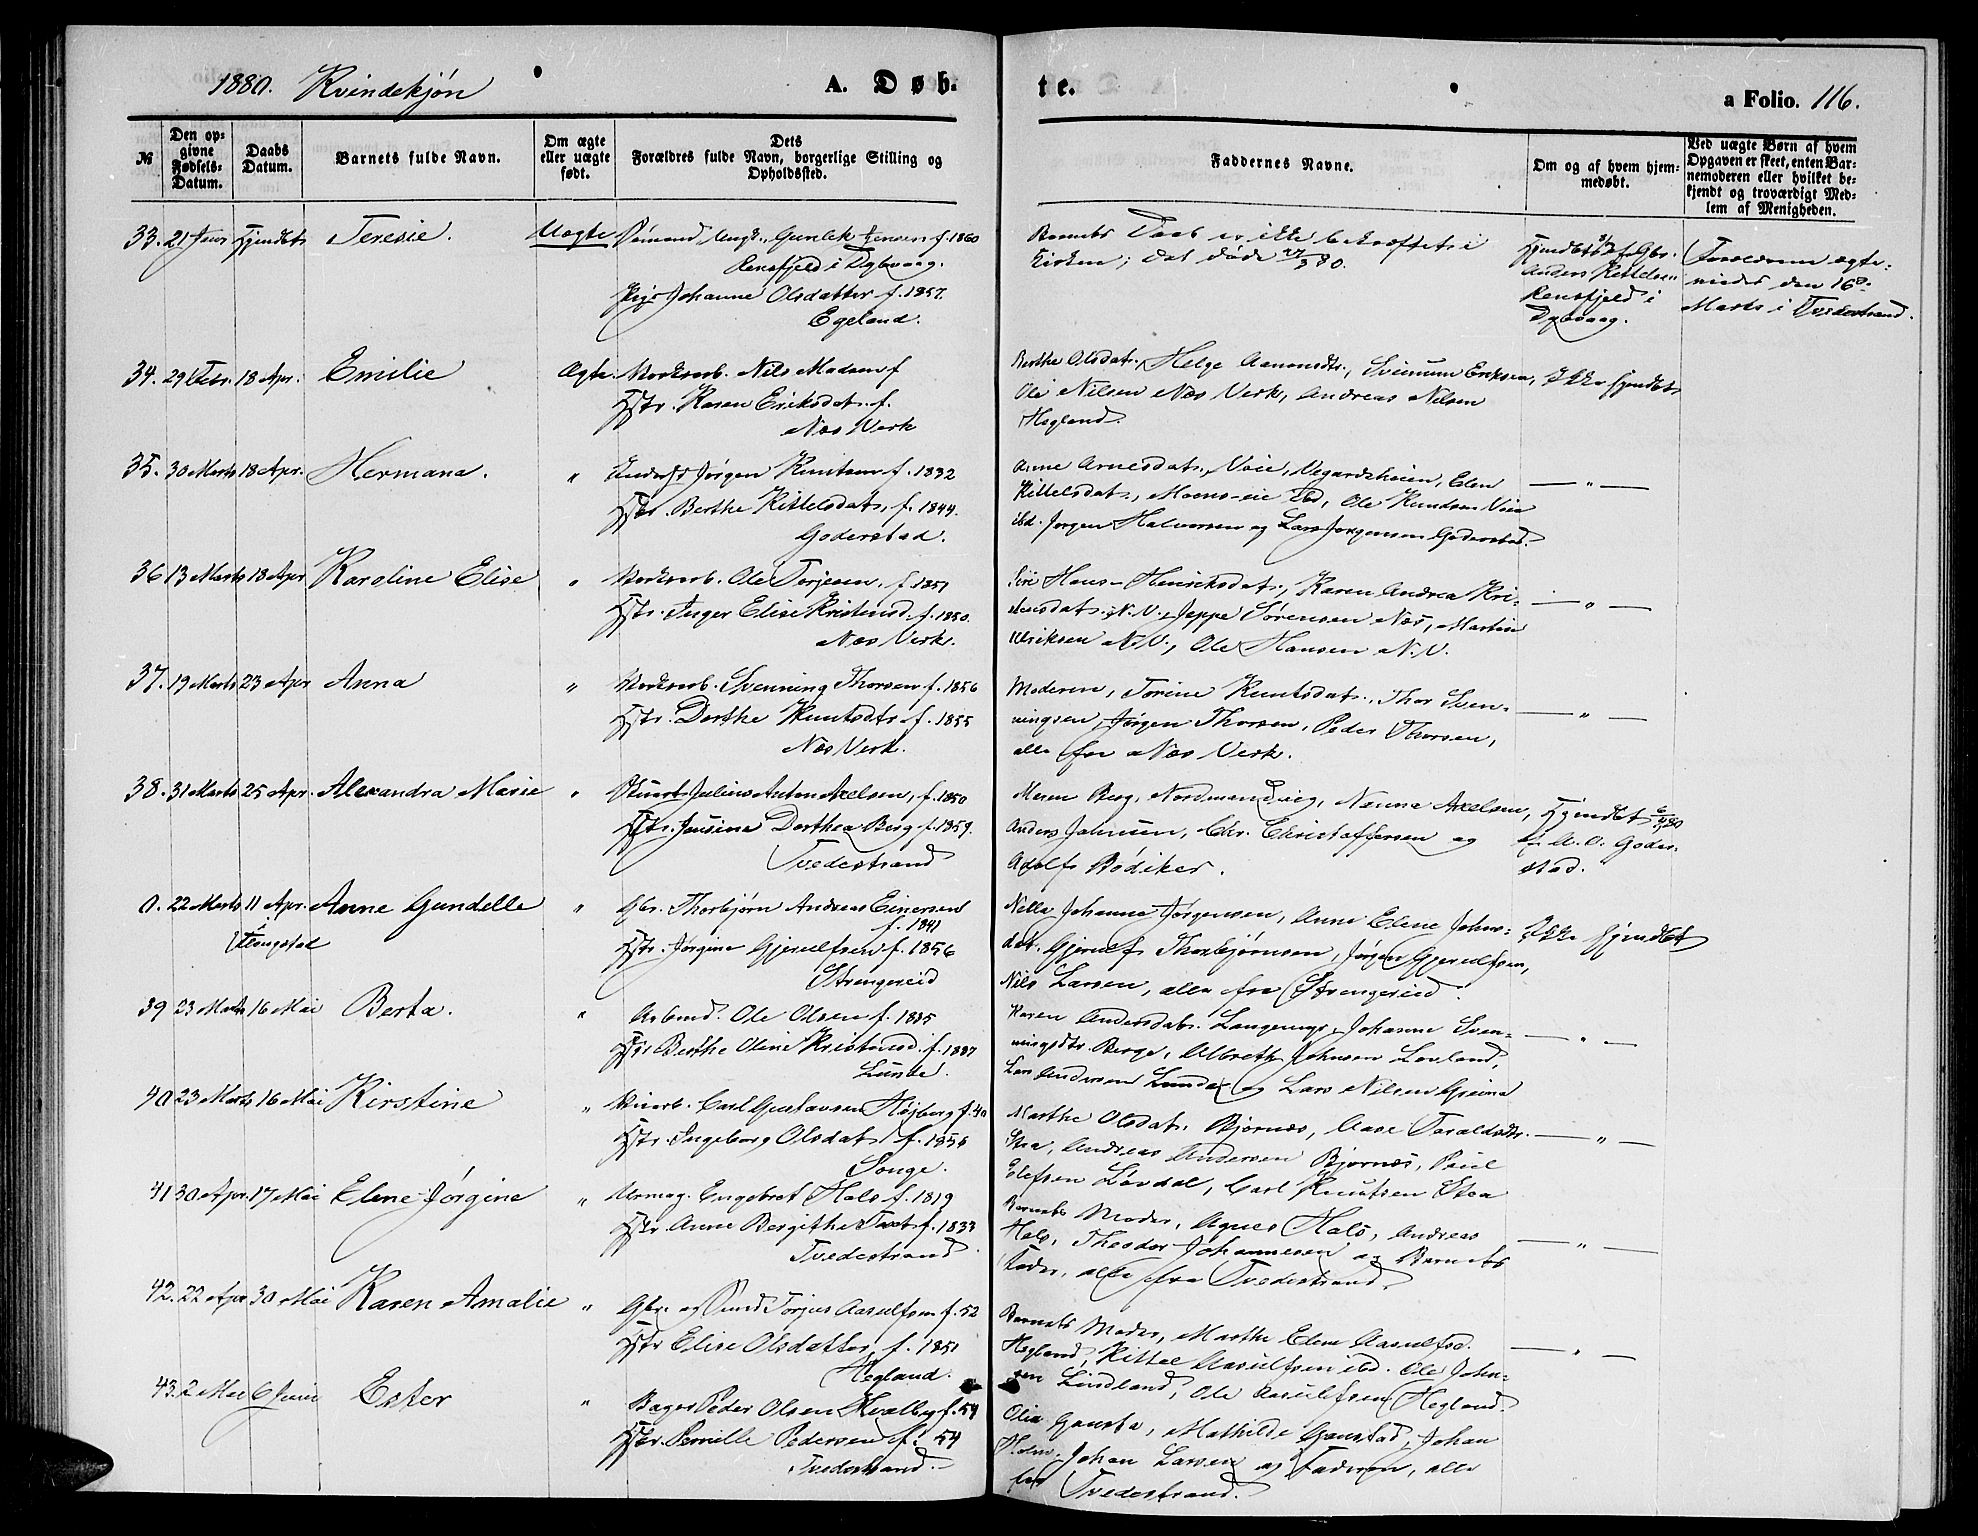 1880. Kvindekjøn A. Døb- te. a Folio. 116.
№ Den opgivne Fødsels-Datum. Daabs Datum. Barnets fulde Navn. Om ægte eller uægte født. Dets Forældres fulde Navn, borgerlige Stilling og Opholdssted. Faddernes Navne. Om og af hvem hjemmedøbt. Ved uægte Børn af hvem Opgaven er skeet, enten Barnemoderen eller hvilket bekjendt og troværdigt Medlem af Menigheden.
33. 21 Hjemdøbt Teresie. Uægte Sømand Ungk. Gunlek Jensen f. 1860
Rensfjeld i Dybvaag.
Pige Johanne Olsdatter f. 1857.
Egeland.
Barnets Daab er ikke bekræftet i
Kirken; det døde 80.
Hjemdøbt af Gbr.
Anders Kittelsen
Rensfjeld i
Dybvaag.
Forældrene ægte-
viedes den 16de
Marts i Tvedestrand.
34. 29 Febr. 18 Apr. Emilie Ægte. Værksarb. Nils Madsen f
Hstr. Karen Eriksdat. f.
Næs Verk
Berthe Olsdat., Helge Aamonsdtr., Svenum Eriksen,
Ole Nilsen Næs Verk, Andreas Nilsen
Hegland.
Ikke hjemdøbt
35. 30 Marts 18 Apr. Hermana. " Jørgen Knutsen f. 1832
Hstr. Berthe Kittelsdat, f. 1844.
Goderstad.
Anne Arnesdat., Voie, Vegardsheien, Elen
Kittelsdat., Moens-eie ibd, Ole Knudsen Voie
ibd. Jørgen Halvorsen og Lars Jørgensen Goderstad.
— " —
36 13 Marts 18 Apr Karoline Elise " Værksarb. Ole Torjesen, f. 1851
Hstr. Inger Elise Kristensd. f. 1850.
Næs Verk.
Siri Hans- Henriksdat., Karen Andrea Kri-
stensdat. N.V., Jeppe Sørensen Næs, Martin
Ulriksen N.V., Ole Hansen N.V.
— " —
37. 19 Marts 23 Apr Anna " Værksarb. Svenning Thorsen f. 1856
Hstr. Dorthe Knutsdtr f. 1855
Næs Verk.
Moderen, Torine Knutsdat., Thor Sven-
ningsen, Jørgen Thorsen, Peder Thorsen,
alle fra Næs Verk.
— " —
38. 31 Marts 25 Apr. Alexandra Marie " Julius Anton Axelsen, f. 1850
Hstr. Jensine Dorthea Berg f. 1859.
Tvedestrand
Maren Berg, Nordmandvig, Nanna Axelsen,
Anders Jansen, Chr. Christoffersen og
Adolf Bødiker.
Hjemdøbt 80
af A. O. Goder-
stad.
0. 22 Marts 11 Apr. Anne Gundelle " Gbr. Thorbjørn Andreas Einersen
f. 1841
Hstr. Jørgine Gjerulfsen f. 1856
Strengereid
Nella Johanna Jørgensen, Anne Elene Johns-
dat. Gjerulf Thorbjørnsen, Jørgen Gjerulfsen,
Nils Larsen, alle fra Strengereid.
Ikke hjemdøbt
39 23 Marts 16 Mai Berta. " Arbmd. Ole Olsen f. 1835
Hstr Berthe Oline Kristensd. f. 1837
Lunde.
Karen Andersdat. Johanne Sven-
ningsdtr. Berge, Albreth Johnsen Lovland,
Andersen Lunde og Lars Nilsen
— " —
40 23 Marts 16 Mai Kirstine " Carl Gustavsen Højberg f. 40
Hstr. Ingeborg Olsdat f. 1856
Songe.
Marthe Olsdat. Bjørnæs, Aase Taraldsdtr.
Andreas Andersen Bjørnæs, Paul
Elefsen Løvdal, Carl Knutsen Stea
— " —
41 30 Apr. 17 Mai Elene Jørgine " Urmag. Engebret Hals f. 1819
Hstr. Anne Bergithe f. 1833
Tvedestrand
Barnets Moder, Agnes Hals, Andreas
Hals, Theodor Johannesen og Barnets
Fader, alle fra Tvedestrand.
— " —
42. 22 Apr 30 Mai Karen Amalie " Gbr. og Torjus Aasulfsen f. 52
Hstr Elise Olsdatter f. 1851
Hegland.
Barnets Moder, Marthe Elene Aasulfsd.
Hegland, Kittel Aasulfsen ibd. Ole John-
sen Lindland, Ole Aasulfsen Hegland.
— " —
43. 2 Mai 6 Juni Ester " Bager Peder Olsen Hvalby f. 54
Hstr. Pernille Pedersen f. 54
Tvedestrand.
Olia Mathilde Johan
Holm, Johan Larsen og Faderen, alle
fra Tvedestrand.